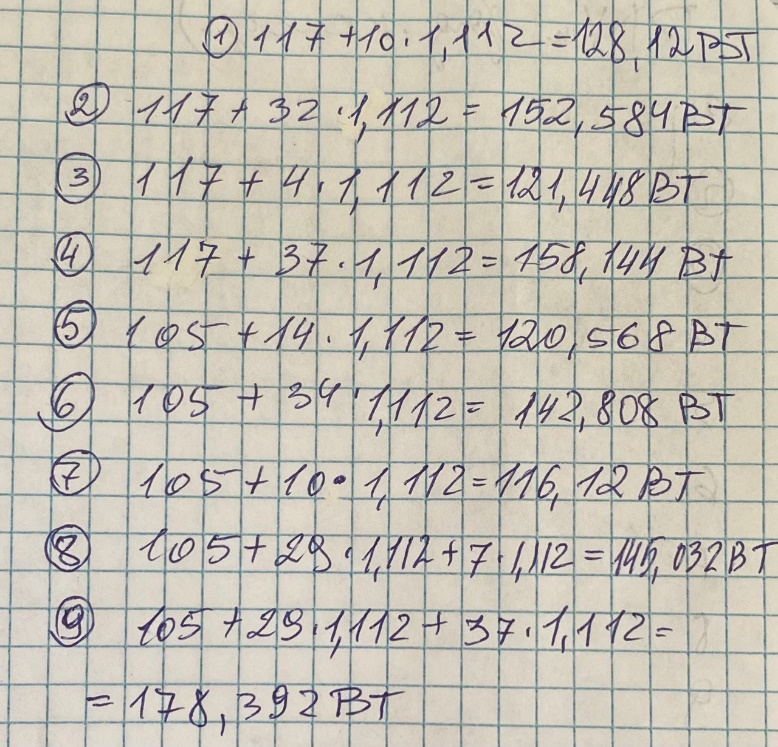 ① 117 + 10 · 1,112 = 128,12 ВТ
② 117 + 32 · 1,112 = 152,584 ВТ
③ 117 + 4 · 1,112 = 121,448 ВТ
④ 117 + 37 · 1,112 = 158,144 ВТ
⑤ 105 + 14 · 1,112 = 120,568 ВТ
⑥ 105 + 34 · 1,112 = 142,808 ВТ
⑦ 105 + 10 · 1,112 = 116,12 ВТ
⑧ 105 + 29 · 1,112 + 7 · 1,112 = 145,032 ВТ
⑨ 105 + 29 · 1,112 + 37 · 1,112 =
= 178,392 ВТ